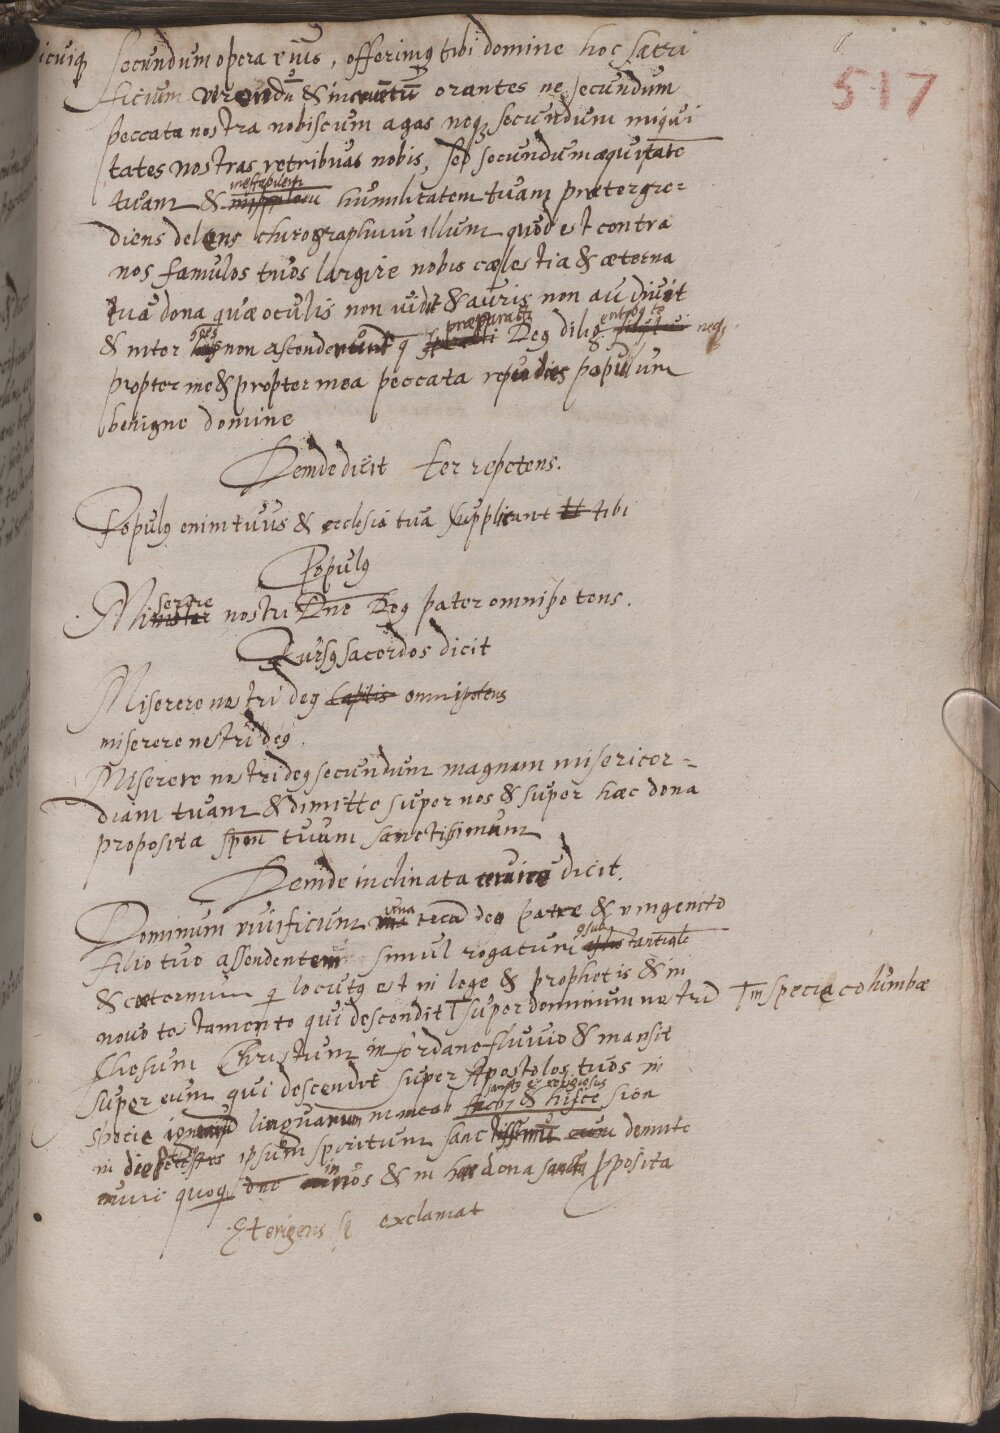 517
icuiq₃ secundum opera eius, offerimus tibi domine hoc sacri
ficium & incruētū orantes ne secundum
peccata nostra nobiscum agas neq₃ secundum iniqui
tates nostras retribuas nobis, sed secundum æquitatē
tuam & ineffabilem humilitatem tuam prætergre-
diens delens chirographum illum quod est contra
nos famulos tuos largire nobis cælestia & æterna
tua dona quæ oculus non uidit & auris non audiuit
& in cor hoīs non ascenderunt q præparasti Deus dilig entib₃ te neq₃
propter me & propter mea peccata repudies populum
benigne domine
Deinde dicit ter repetens.
Populus enim tuus & ecclesia tua supplicant tibi
Populus
Miserere nostri Dne Deus pater omnipotens.
Rursus sacerdos dicit
Miserere nostri deus omnipotens
miserere nostri deus.
Miserere nostri deus secundum magnam misericor-
diam tuam & dimitte super nos & super hæc dona
proposita spm tuum sanctissimum
Deinde inclinata ceruice dicit.
Dominum uiuificum una tecū deo patre & unigenito
filio tuo assendentem simul rogatum
& coæternum q locutus est in lege & prophetis & in
nouo testamento qui descendit ⸆ super dominum nostrū ⸆ in specie columbæ
Jhesum Christum in jordane fluuio & mansit
super eum qui descendit super Apostolos tuos in
specie linguarum in sancto & sion
in ipsum spiritum sanctissimū demitte
quoq₃ dne in nos & in hæc dona sancta proposita
Et erigens se exclamat